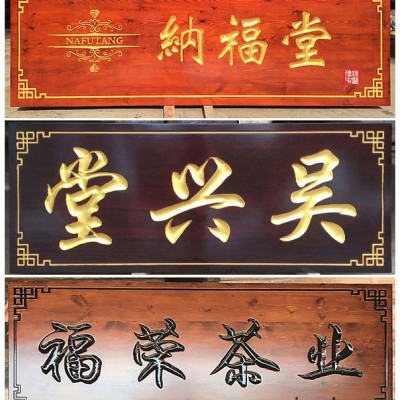 NAFUTANG
納福堂
吴兴堂
福荣茶业